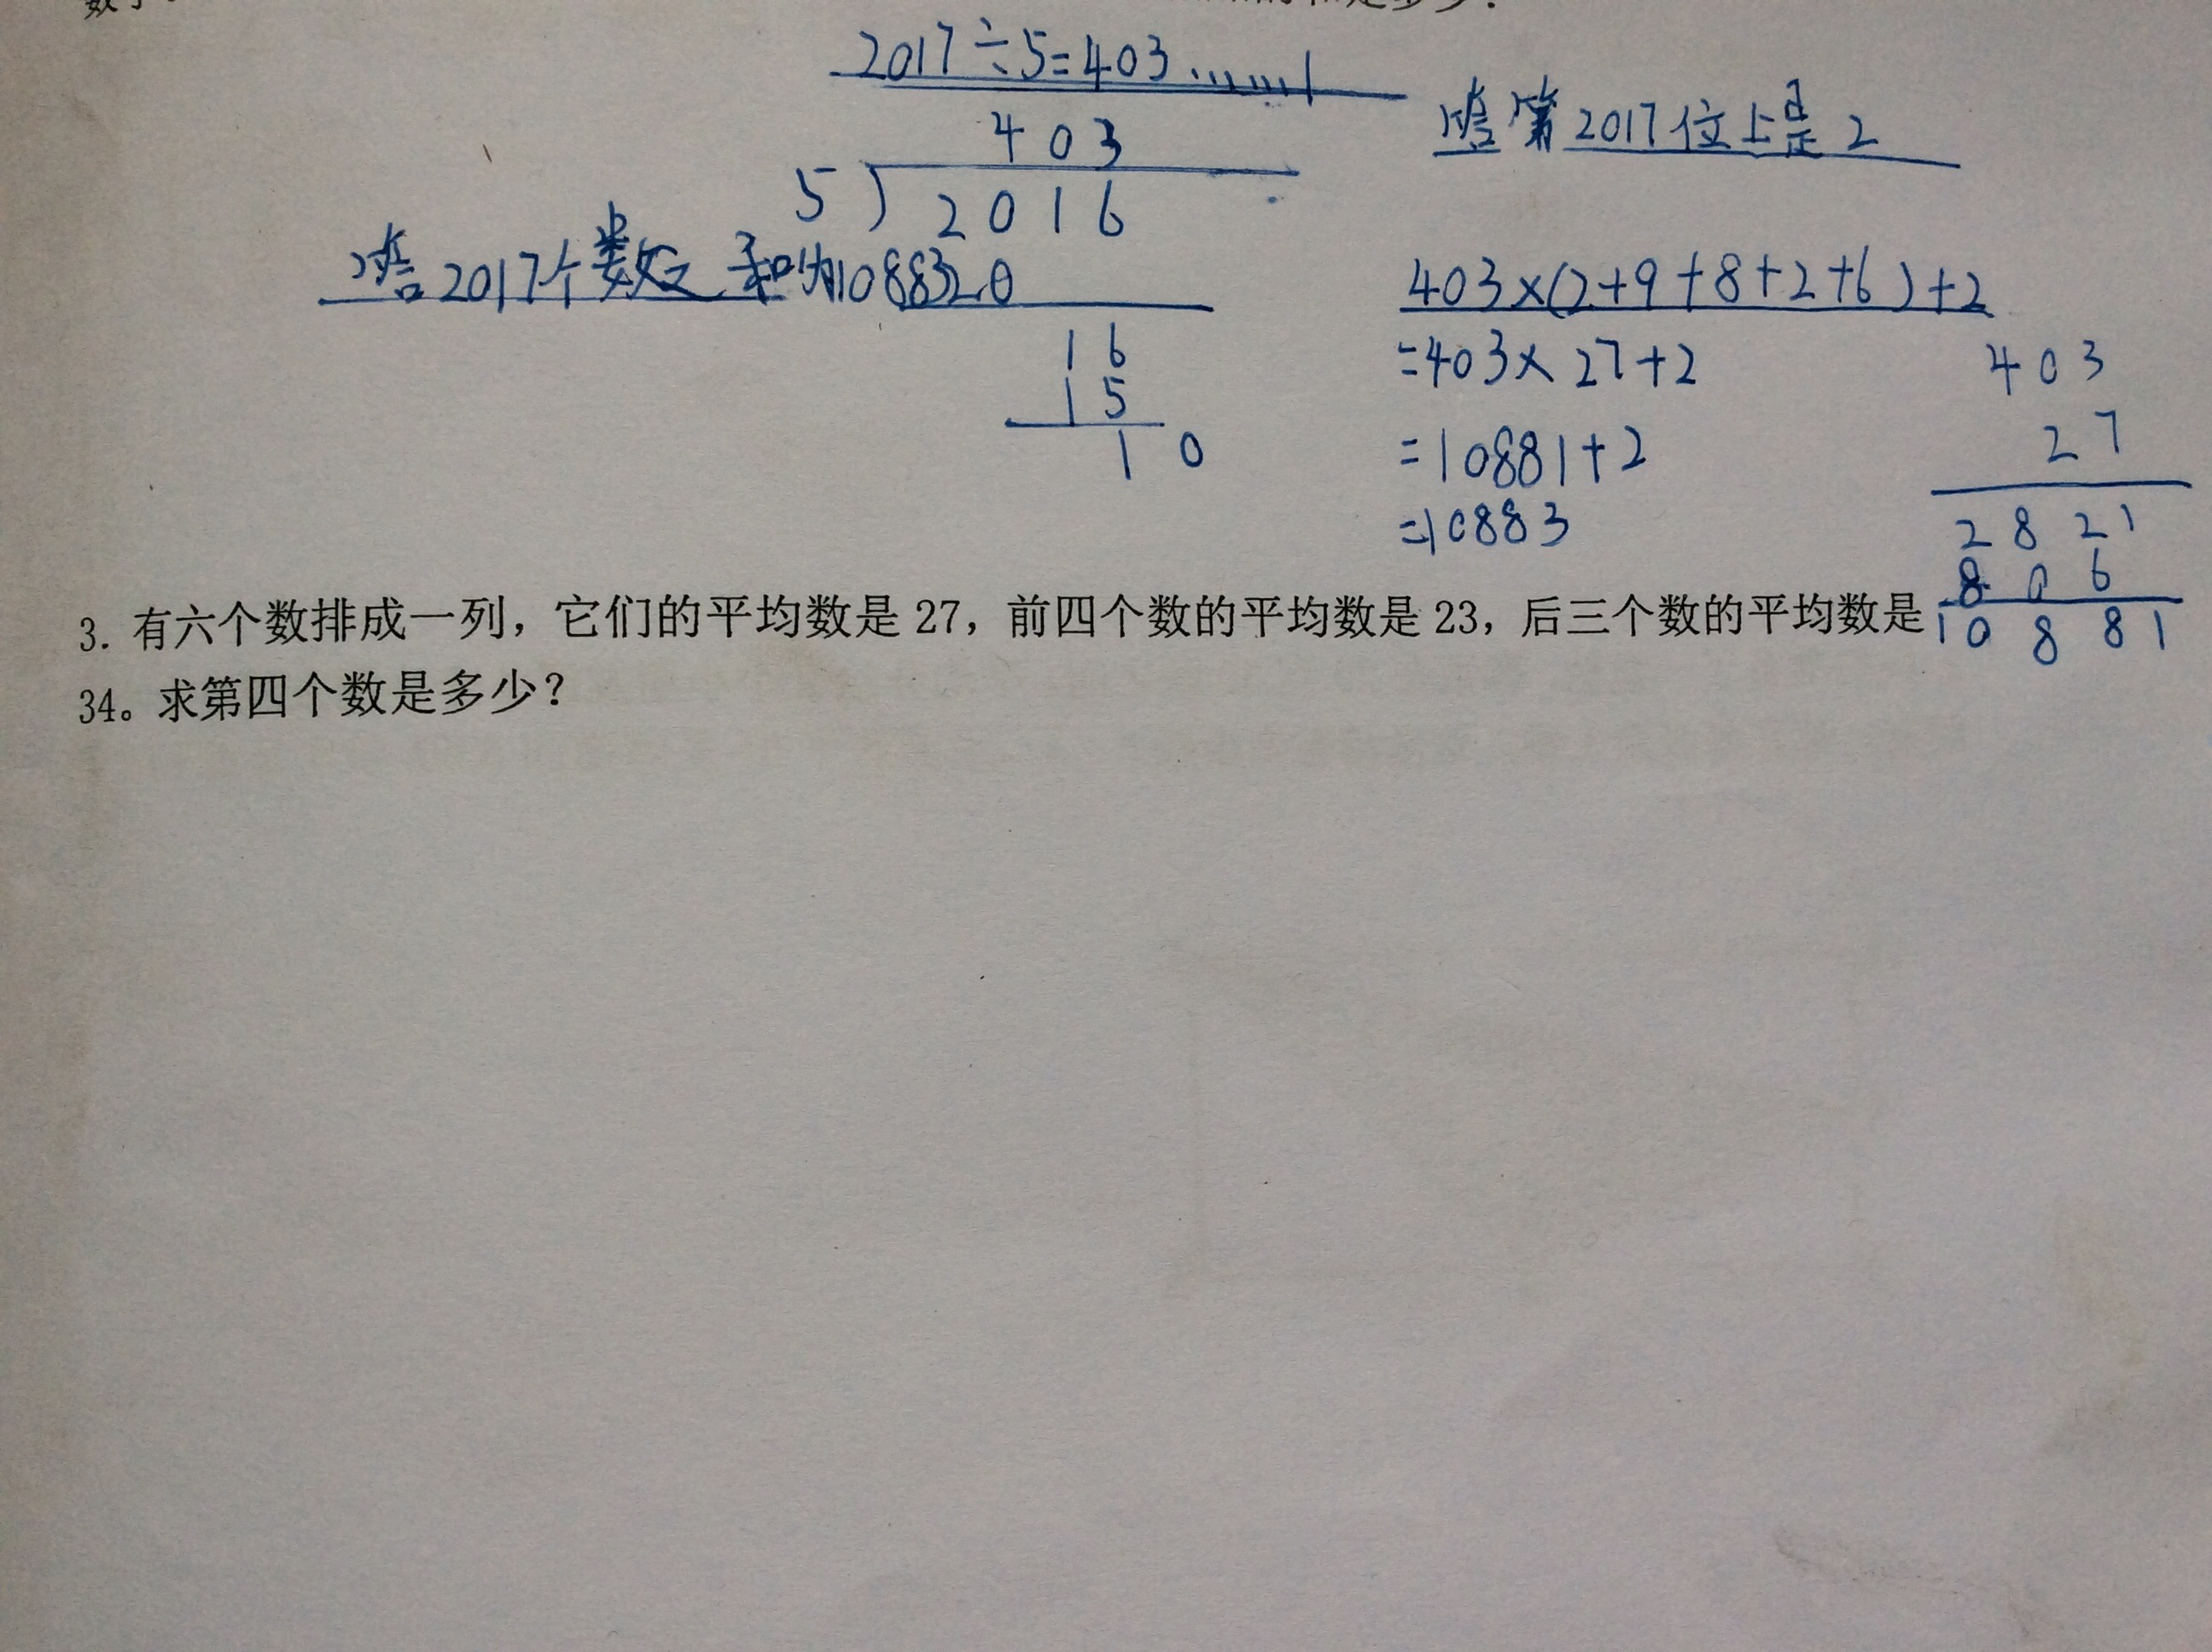 2017÷5=403……1
答第2017位上是2
403
5)2016
答2017个数之和为10883
20
16
15
10
403×(2+9+8+2+6)+2
=403×27+2
=10881+2
=10883
403
27
2821
806
10881
3. 有六个数排成一列，它们的平均数是27，前四个数的平均数是23，后三个数的平均数是
34。求第四个数是多少？